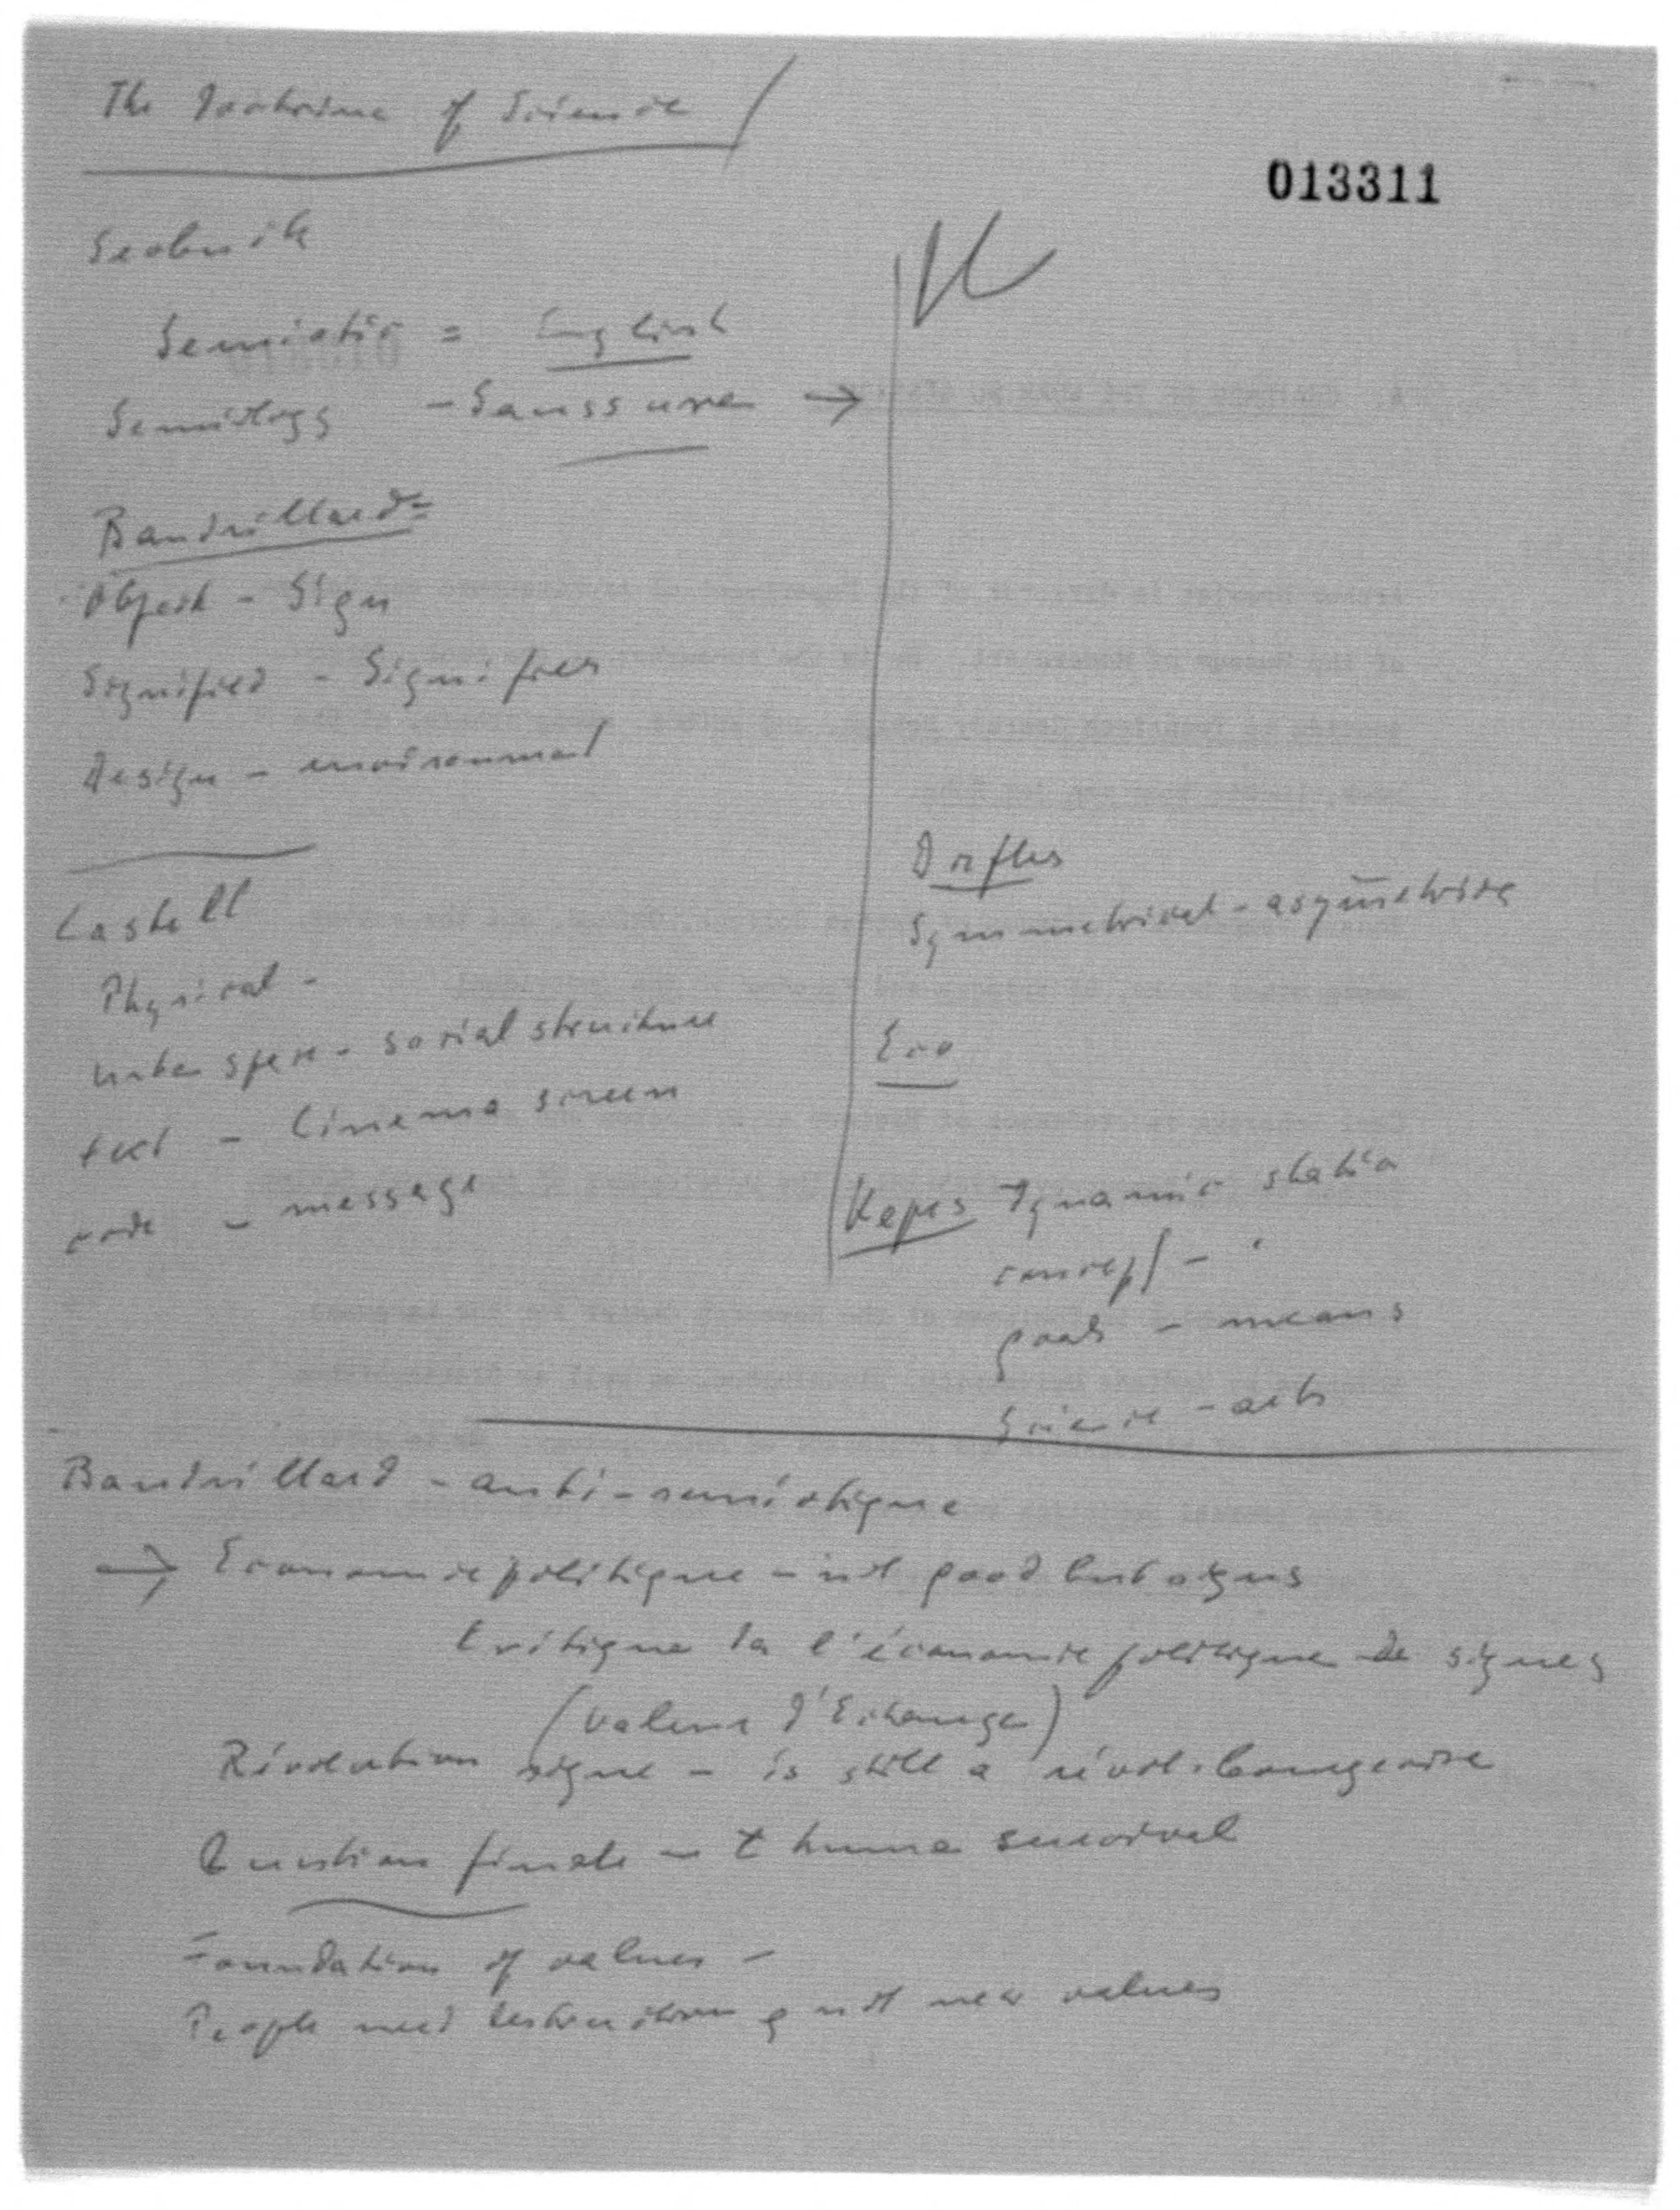 The Doctrine of Science
013311
Sebeok
Semiotic = English
Semiology - Saussure →
Baudrillard =
Object - Sign
Signified - Signifier
Design - environment
Castell
Physical -
urban space - social structure
text - Cinema screen
code - message
Dorfles
Symmetrical - asymetrical
Eco
Kepes Dynamic static
concept -
goals - means
Science - arts
Baudrillard - anti-semiotique
→ Economie politique - not good but signs
Critique de l'économie politique de signes
(valeur d'Echange)
Révolution signe - is still a révol. bourgeoise
Question finale - human survival
Foundation of values -
People need destruction not new values